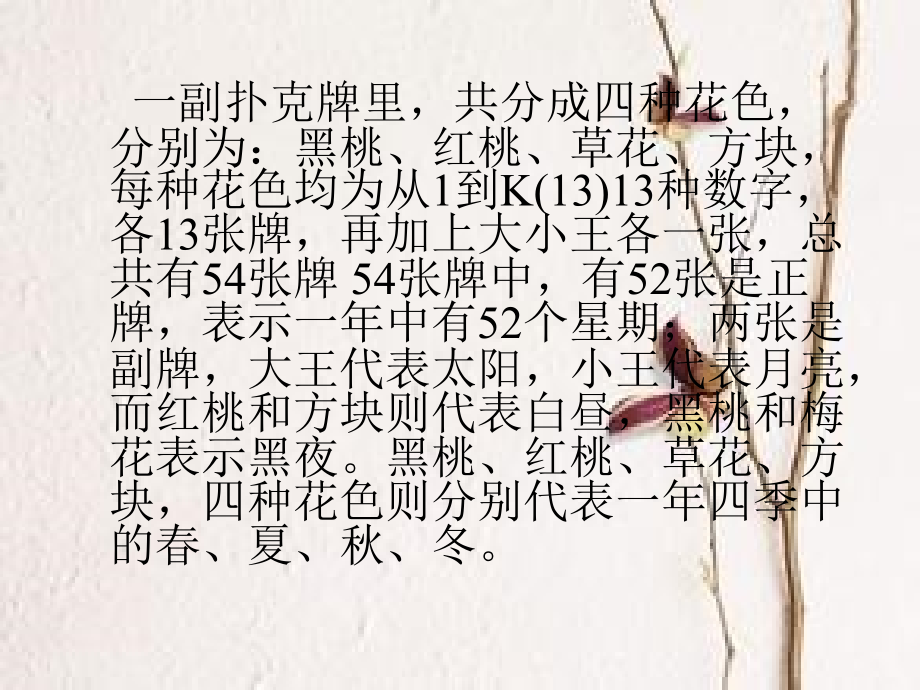 一副扑克牌里，共分成四种花色，
分别为：黑桃、红桃、草花、方块，
每种花色均为从1到K(13)13种数字，
各13张牌，再加上大小王各一张，总
共有54张牌 54张牌中，有52张是正
牌，表示一年中有52个星期；两张是
副牌，大王代表太阳，小王代表月亮，
而红桃和方块则代表白昼，黑桃和梅
花表示黑夜。黑桃、红桃、草花、方
块，四种花色则分别代表一年四季中
的春、夏、秋、冬。